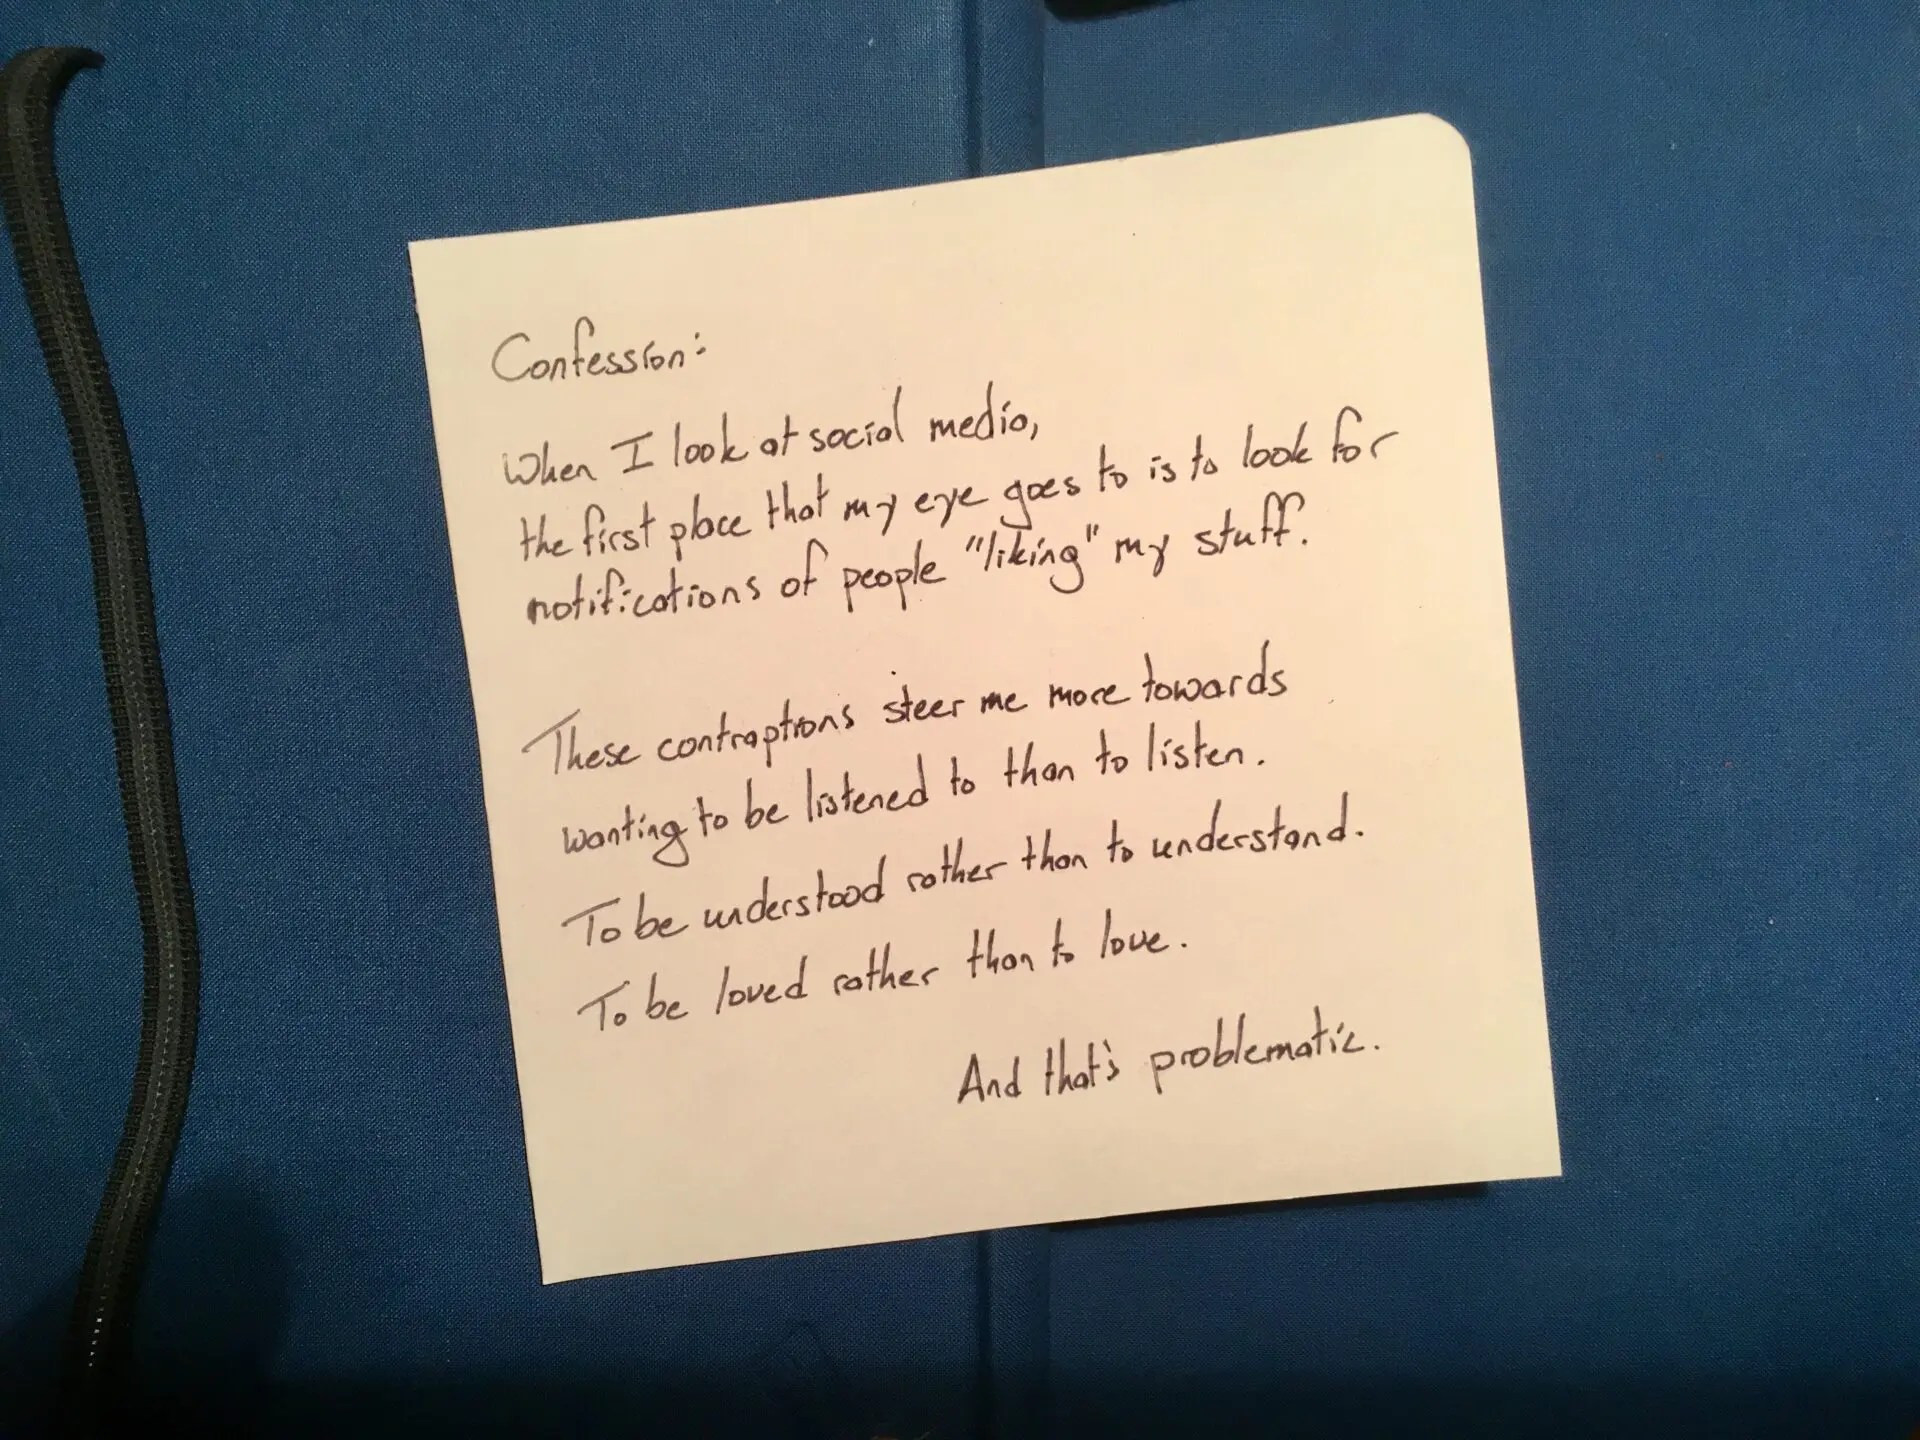 Confession:
When I look at social media,
the first place that my eye goes to is to look for
notifications of people "liking" my stuff.
These contraptions steer me more towards
wanting to be listened to than to listen.
To be understood rather than to understand.
To be loved rather than to love.
And that's problematic.